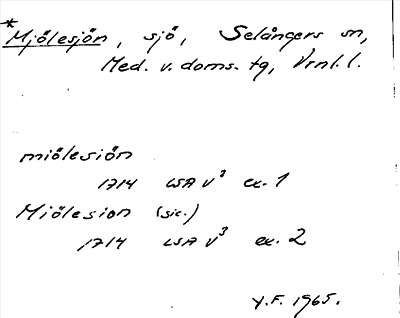 *Mjölesjön, sjö, Selångers sn,
Med. v. doms. tg, Vrnl. l.
miölesiön
1714 LSA V³ ex. 1
Miölesion (sic.)
1714 LSA V³ ex. 2
Y.F. 1965.